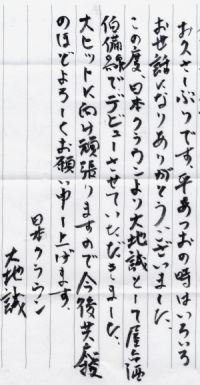 お久さしぶりです。平あつおの時はいろいろ
お世話になりありがとうございました。
この度、日本クラウンより大地誠として
伯備線でデビューさせていただきました。
大ヒットに向け頑張りますので今後共
のほどよろしくお願い申し上げます。
日本クラウン
大地誠